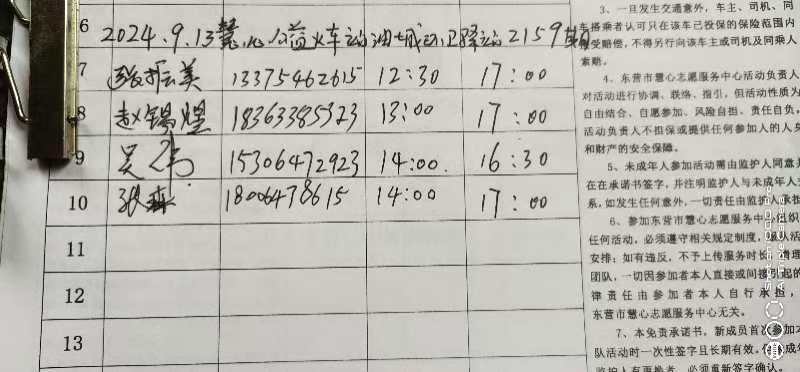 6 2024.9.13慧心公益火车站油城
7 张振美 13375462615 12:30 17:00
8 赵锡煌 18363385323 13:00 17:00
9 吴伟 15306472923 14:00. 16:30
10 张森 18006478615 14:00 17:00
11
12
13
3、一旦发生交通意外，车主、司机、同
车搭乘者认可只在该车已投保的保险范围内
接受赔偿，不得另行向该车主或司机及同乘人
索赔。
4、东营市慧心志愿服务中心活动负责人
对活动进行协调、联络、指引，但活动性质为
自由结合、自愿参加、风险自担、责任自负，
活动负责人不担保或提供任何参加人的人身
和财产的安全保障。
5、未成年人参加活动需由监护人同意并
在在承诺书签字，并注明监护人与未成年人
系，如发生任何意外，一切责任由监护人承担
6、参加东营市慧心志愿服务中心组织
任何活动，必须遵守相关规定制度，服从活
安排；如有违反，不予上传服务时长，清理
团队，一切因参加者本人直接或间接引起的
律责任由参加者本人自行承担，
东营市慧心志愿服务中心无关。
7、本免责承诺书，新成员首次参加本
队活动时一次性签字且长期有效。 成年
监护人有更换者，必须重新签字确认。